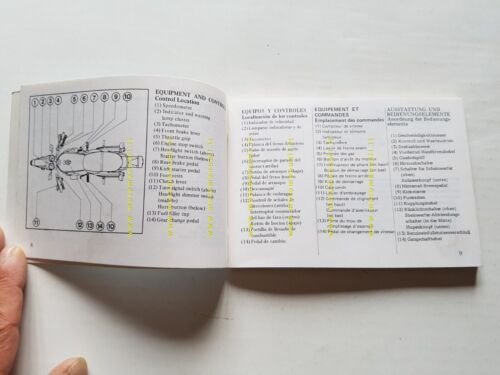 ① ② ③ ④ ⑤ ⑥ ⑦ ⑧ ⑨ ⑩
⑪ ⑫ ⑬ ⑭
8
EQUIPMENT AND CONTROLS
Control Location
(1) Speedometer
(2) Indicator and warning
lamp cluster
(3) Tachometer
(4) Front brake lever
(5) Throttle grip
(6) Engine stop switch
(7) Headlight switch (above)
Starter button (below)
(8) Rear brake pedal
(9) Kick starter pedal
(10) Foot rests
(11) Clutch lever
(12) Turn signal switch (above)
Headlight dimmer switch
(middle)
Horn button (below)
(13) Fuel filler cap
(14) Gear change pedal
EQUIPOS Y CONTROLES
Localización de los controles
(1) Indicador de velocidad
(2) Lámparas indicadoras y de
(3) Tacómetro
(4) Palanca del freno delantero
(5) Puño de mando de gases
(6) Interruptor de parada del
motor
(7)
(8) Pedal del freno trasero
(9) Pedal de arranque
(10) Descansapies
(11) Palanca de embrague
(12) Control de señales de
Interruptor conmutador
del haz de faro
Botón de bocina (abajo)
(13) Portilla de llenado de
combustible
(14) Pedal de cambio
EQUIPEMENT ET
COMMANDES
Emplacement des commandes
(1) Compteur de vitesse
(2) Indicateur et témoins
(3) Tachymètre
(4) Levier de frein avant
(5) Poignée des gaz
(6) Bouton d'arrêt du moteur
Bouton de démarrage (en bas)
(8) Pédale de frein arrière
(9) Kick de démarrage
(10) Cale-pieds
(11) Levier d'embrayage
(12) Commande de clignotant
(en haut)
Commande
(13)
(14) Pédale de changement de vitesse
AUSSTATTUNG UND
BEDIENUNGSELEMENTE
Anordnung der Bedienungs-
elemente
(1) Geschwindigkeitsmesser
(2) Kontroll und Warnleuchten
(3) Drehzahlmesser
(4) Vorderrad-Bremshebel
(5) Gasdrehgriff
(6) Motorabschalter
(7) Schalter für Scheinwerfer
(oben)
Anlasserknopf (unten)
(8) Hinterrad-Bremspedal
(9) Kickstarter
(10) Fussrasten
(11) Kupplungshebel
(12) Blinklichtschalter (oben)
Scheinwerfer-Abblendungs-
schalter (in der Mitte)
Hupenknopf (unten)
(13) Benzineinfüllstutzenverschluß
(14) Gangschalthebel
9